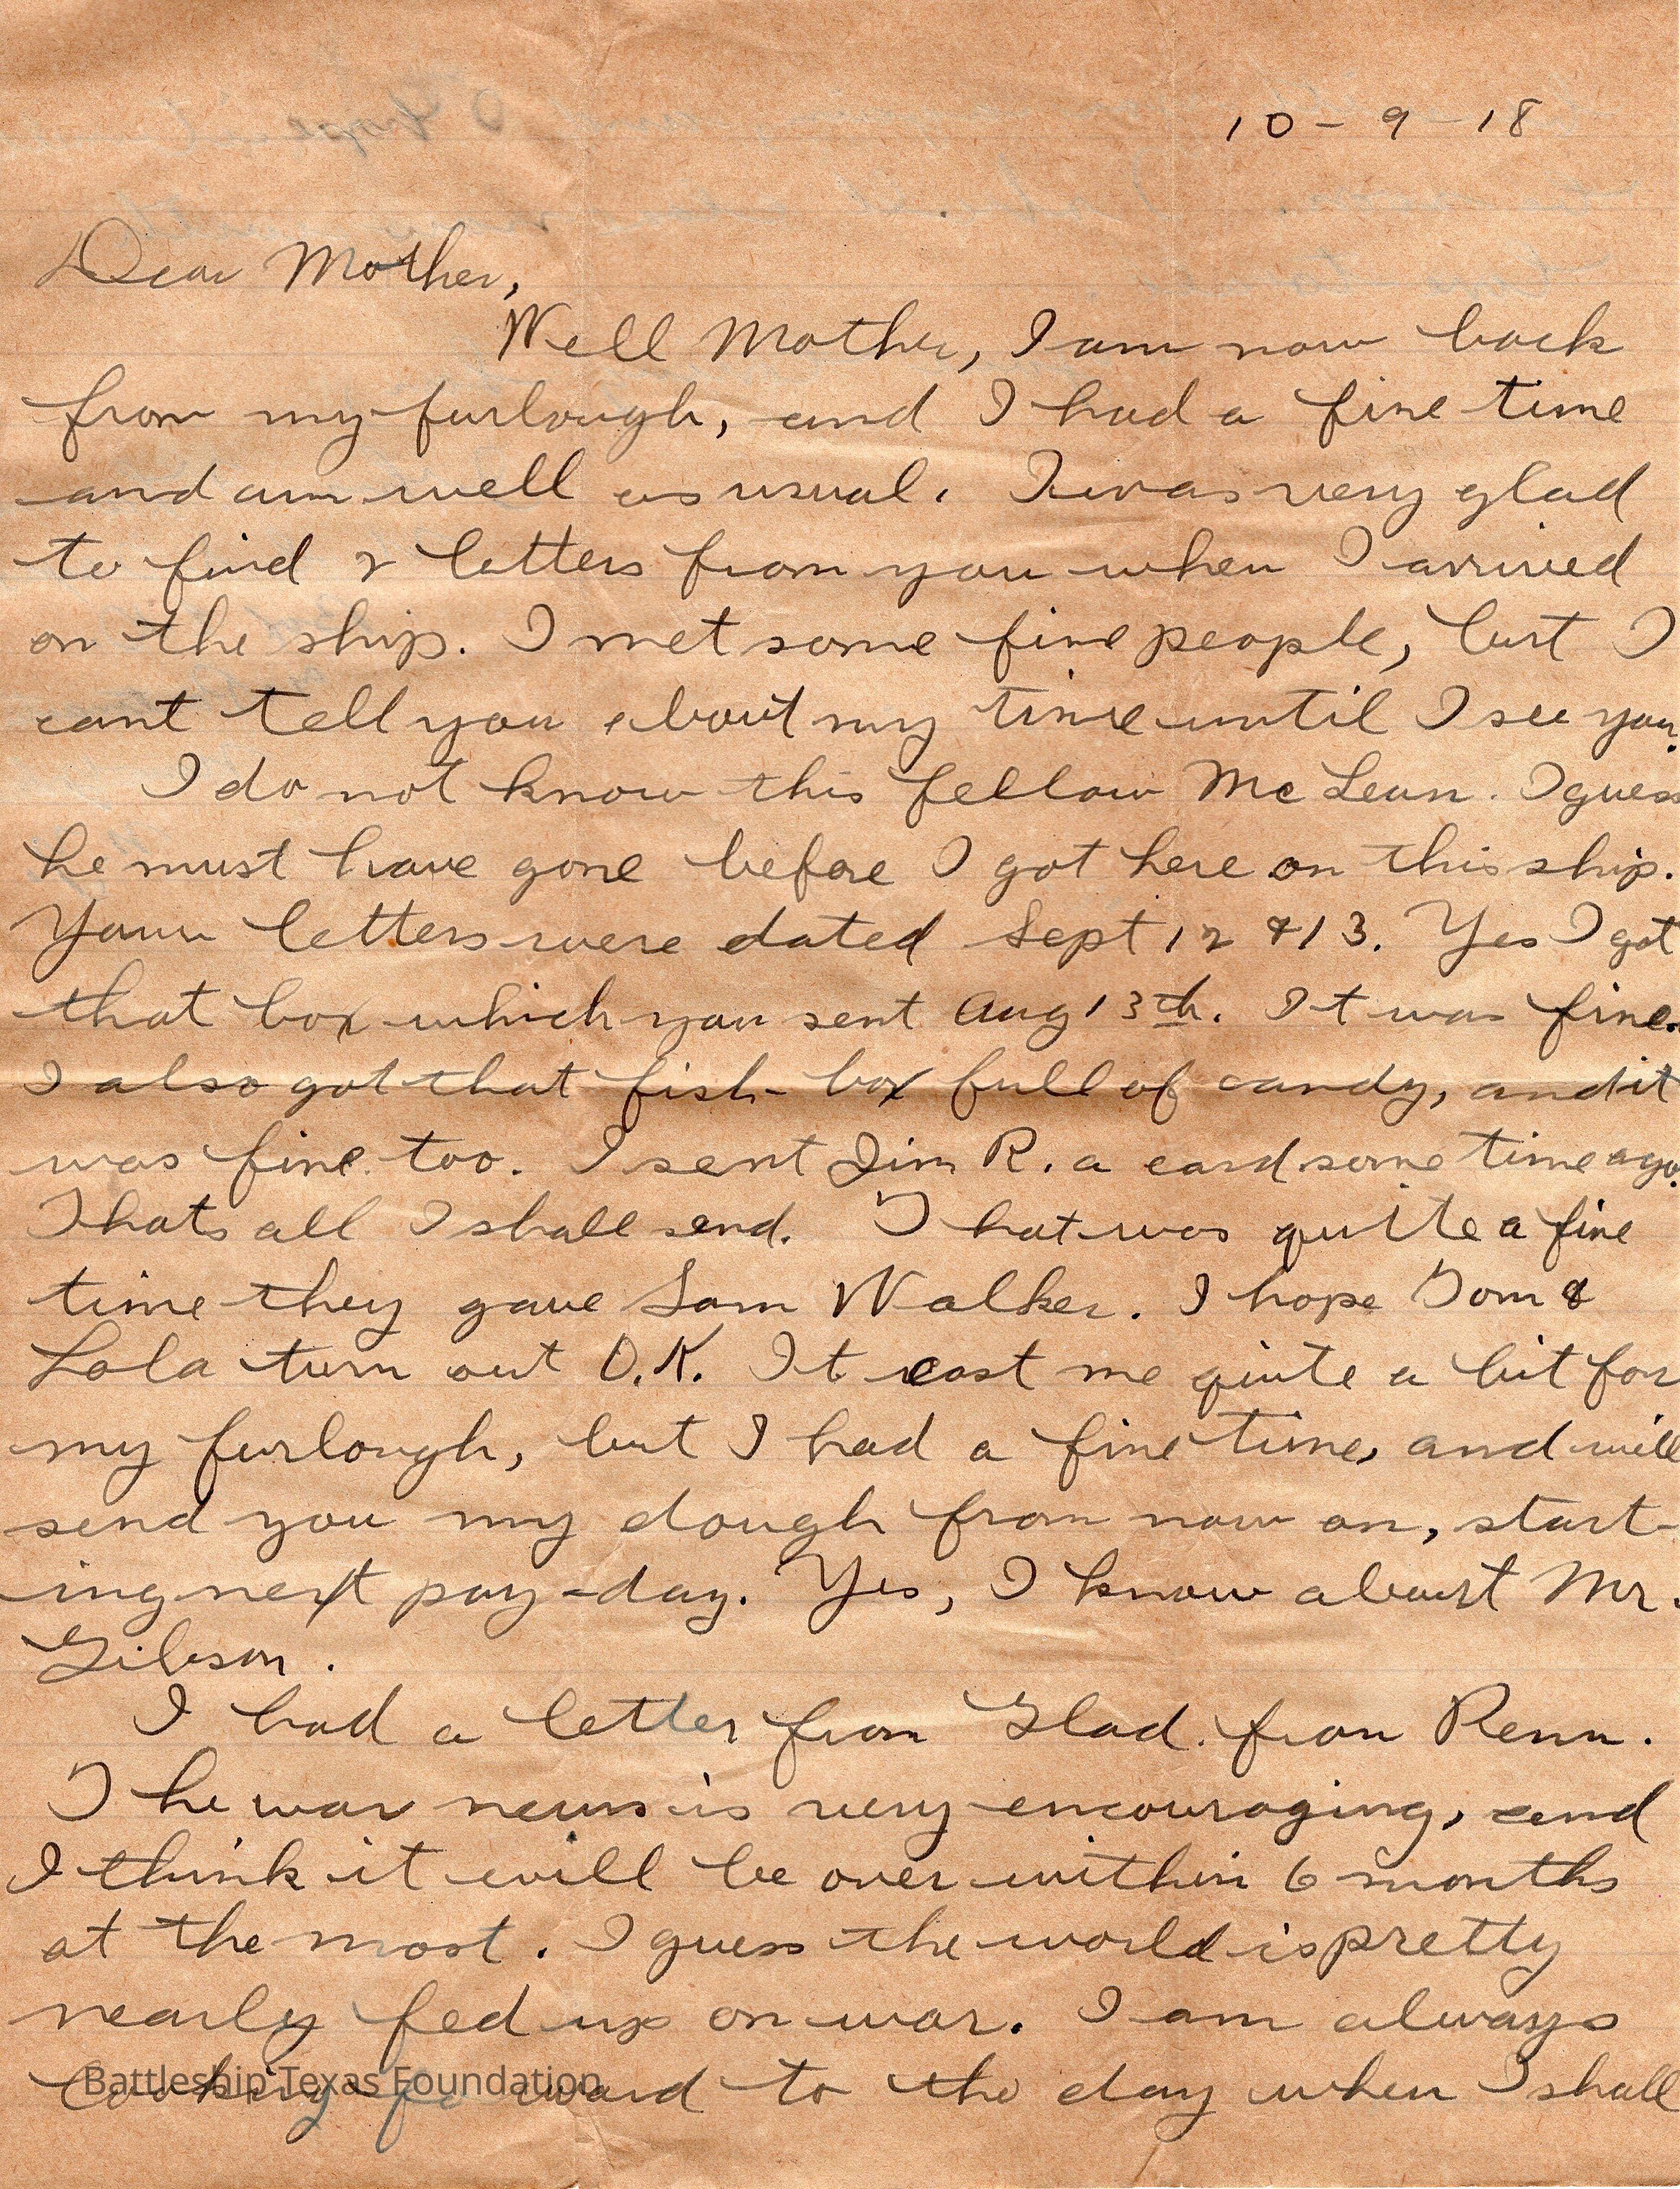 10-9-18
Dear Mother,
Well Mother, I am now back
from my furlough, and I had a fine time
and am well as usual. I was very glad
to find 2 letters from you when I arrived
on the ship. I met some fine people, but I
cant tell you about my time until I see you.
I do not know this fellow McLean. I guess
he must have gone before I got here on this ship.
Your letters were dated Sept 12 & 13. Yes I got
that box which you sent Aug 13th. It was fine.
I also got that fish-box full of candy, and it
was fine too. I sent Jim R. a card some time ago.
Thats all I shall send. That was quite a fine
time they gave Sam Walker. I hope Tom &
Lola turn out O.K. It cost me quite a bit for
my furlough, but I had a fine time, and will
send you my dough from now on, start-
ing next pay-day. Yes, I know about Mr.
Gibson.
I had a letter from Glad. from Penn.
The war news is very encouraging, and
I think it will be over within 6 months
at the most. I guess the world is pretty
nearly fed up on war. I am always
looking forward to the day when I shall
Battleship Texas Foundation